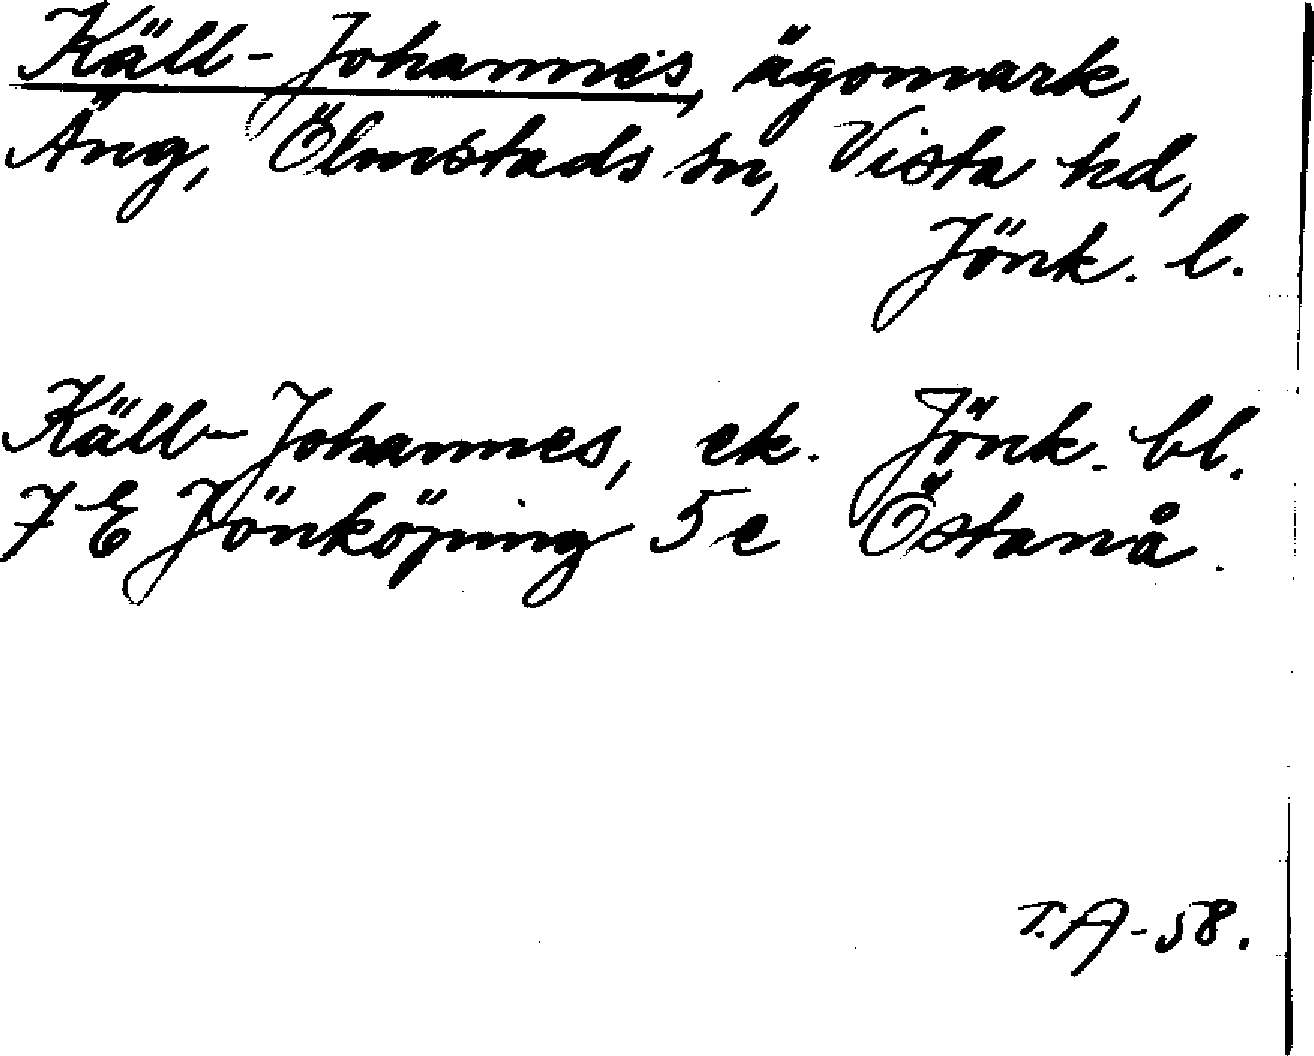 Käll-Johannes, ägomark,
Äng, Ölmstads sn, Vista hd,
Jönk. l.
Käll-Johannes, ek. Jönk. bl.
7 E Jönköping 5 e Östanå.
T.A-58.